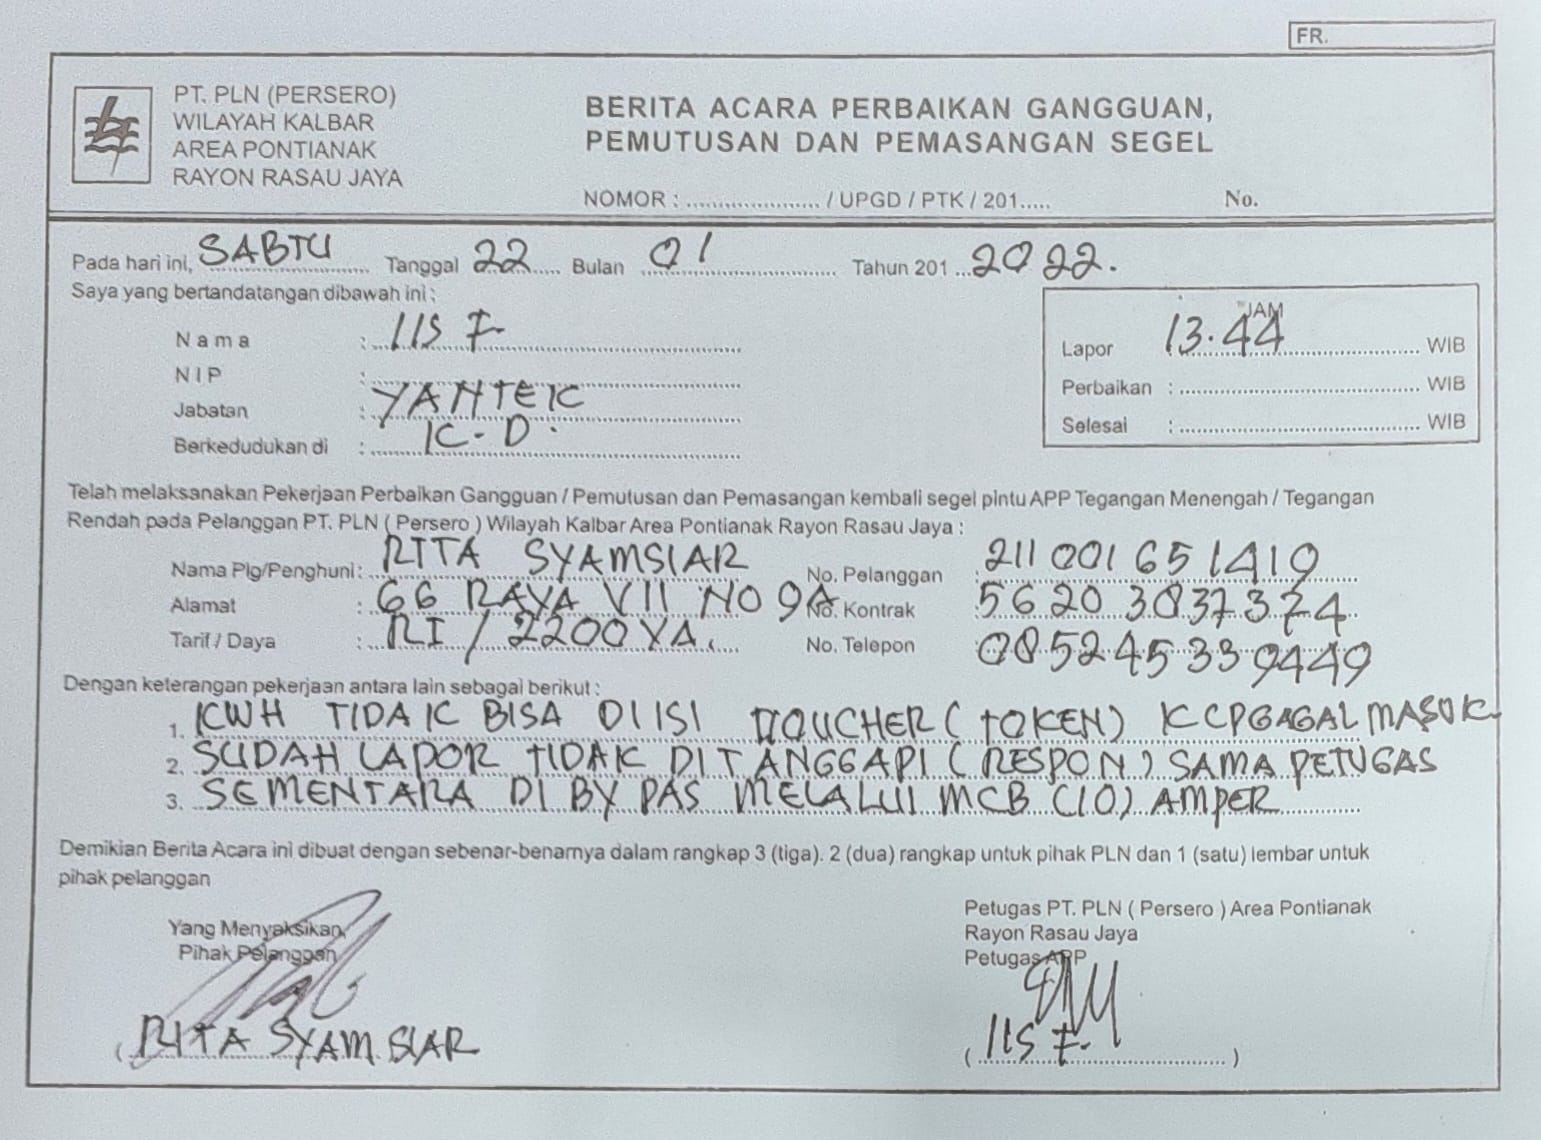 FR.
PT. PLN (PERSERO)
WILAYAH KALBAR
AREA PONTIANAK
RAYON RASAU JAYA
BERITA ACARA PERBAIKAN GANGGUAN,
PEMUTUSAN DAN PEMASANGAN SEGEL
NOMOR : ..................... / UPGD / PTK / 201..... No.
Pada hari ini, SABTU Tanggal 22 Bulan 01 Tahun 201 ... 2022.
Saya yang bertandatangan dibawah ini :
Nama : IIS F
NIP :
Jabatan : YANTEK
Berkedudukan di : K-D.
JAM
Lapor 13.44 WIB
Perbaikan : WIB
Selesai : WIB
Telah melaksanakan Pekerjaan Perbaikan Gangguan / Pemutusan dan Pemasangan kembali segel pintu APP Tegangan Menengah / Tegangan
Rendah pada Pelanggan PT. PLN ( Persero ) Wilayah Kalbar Area Pontianak Rayon Rasau Jaya :
Nama Plg/Penghuni : RITA SYAMSIAR No. Pelanggan : 211 001 651419
Alamat : GG RAYA VII NO 9A No. Kontrak : 5620 3037374
Tarif / Daya : RI / 2200 VA. No. Telepon : 085245339449
Dengan keterangan pekerjaan antara lain sebagai berikut :
1. KWH TIDAK BISA DIISI VOUCHER ( TOKEN ) KCP GAGAL MASUK
2. SUDAH LAPOR TIDAK DI TANGGAPI ( RESPON ) SAMA PETUGAS
3. SEMENTARA DI BY PAS MELALUI MCB (10) AMPER
Demikian Berita Acara ini dibuat dengan sebenar-benarnya dalam rangkap 3 (tiga). 2 (dua) rangkap untuk pihak PLN dan 1 (satu) lembar untuk
pihak pelanggan
Yang Menyaksikan
Pihak Pelanggan
( RITA SYAMSIAR
Petugas PT. PLN ( Persero ) Area Pontianak
Rayon Rasau Jaya
Petugas APP
( IIS F. )